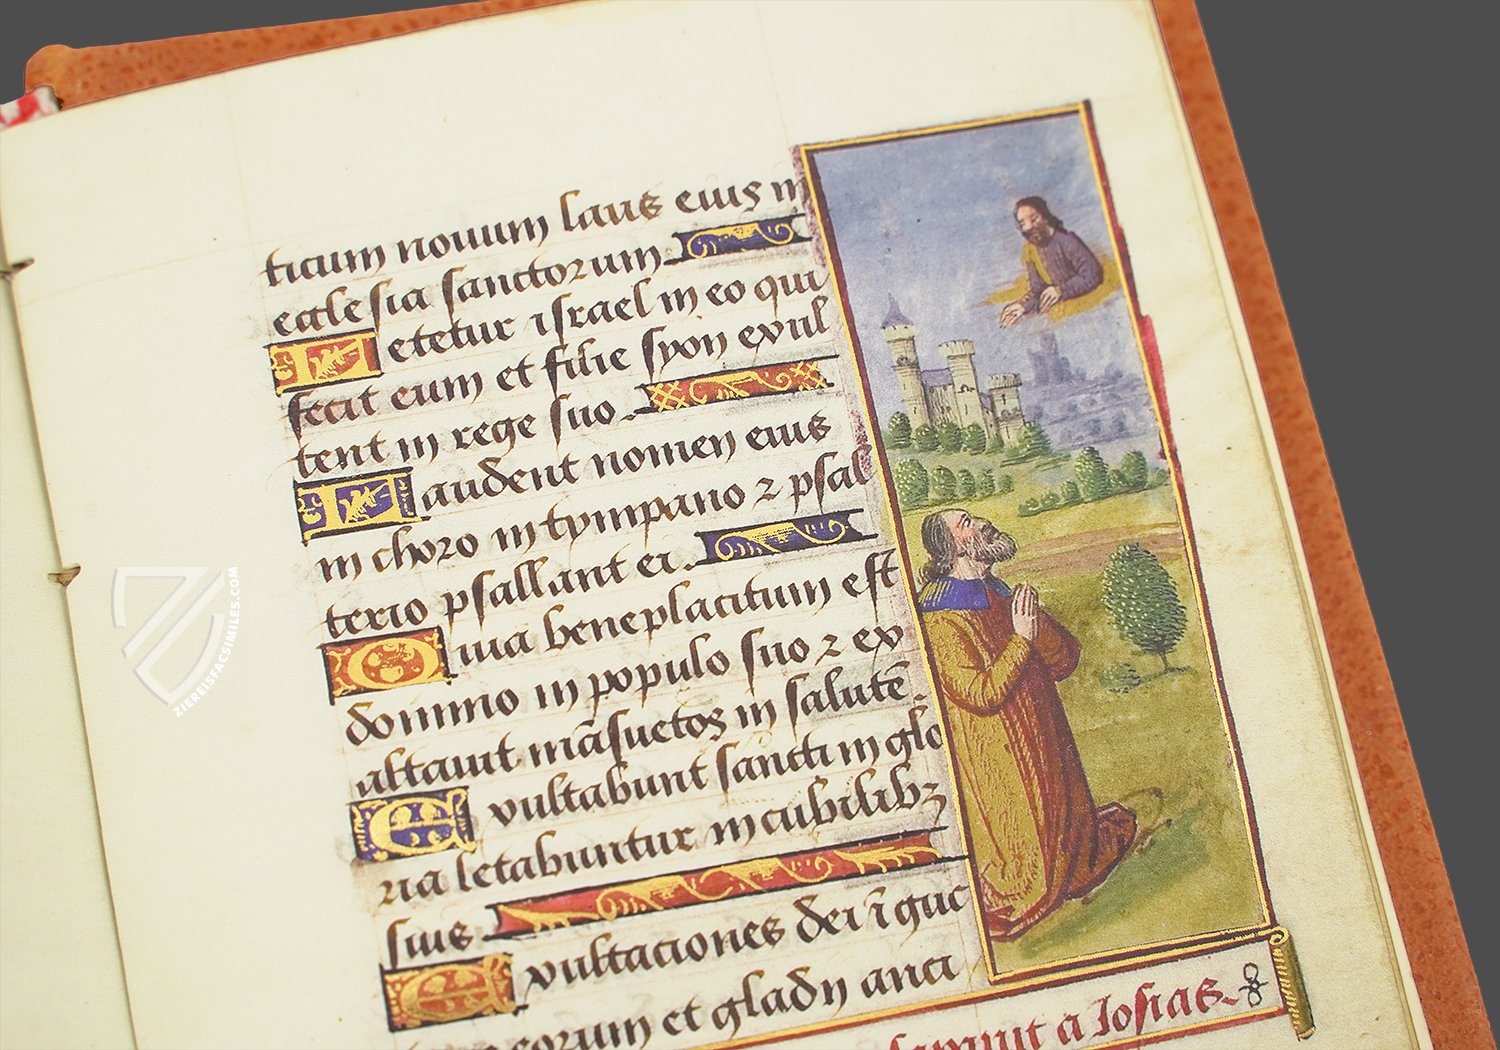 ticum novum laus eius in
ecclesia sanctorum
Letetur israel in eo qui
fecit eum et filie syon exul
tent in rege suo.
Laudent nomen eius
in choro in tympano ⁊ psal
terio psallant ei.
Quia beneplacitum est
domino in populo suo ⁊ ex
altavit mãsuetos in salutẽ.
Exultabunt sancti in glo
ria letabuntur in cubilibꝫ
suis
Exultaciones dei ĩ guc
eorum et gladii anci
a Iosias.
ZIEREISFACSIMILES.COM